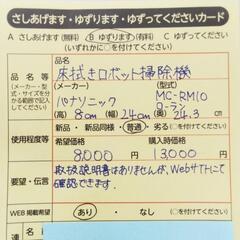 さしあげます・ゆずります・ゆずってくださいカード
A さしあげます(無料) B ゆずります(有料) C ゆずってください
(いずれかに○を付けてください)
品名等
(メーカー・型式・サイズを分かる範囲で記入してください)
床拭きロボット掃除機
(メーカー) パナソニック (型式) MC-RM10 ローラン
(高さ) 8cm (幅) 24cm (奥) 24.3cm
使用程度等
新品・新品同様・普通 (○を付けてください)
希望価格 8,000円 購入時価格 13,000円
要望・伝言
取扱説明書はありませんが、Webサイトにて
確認できます。
WEB掲載希望
あり ・ なし (○を付けてください)